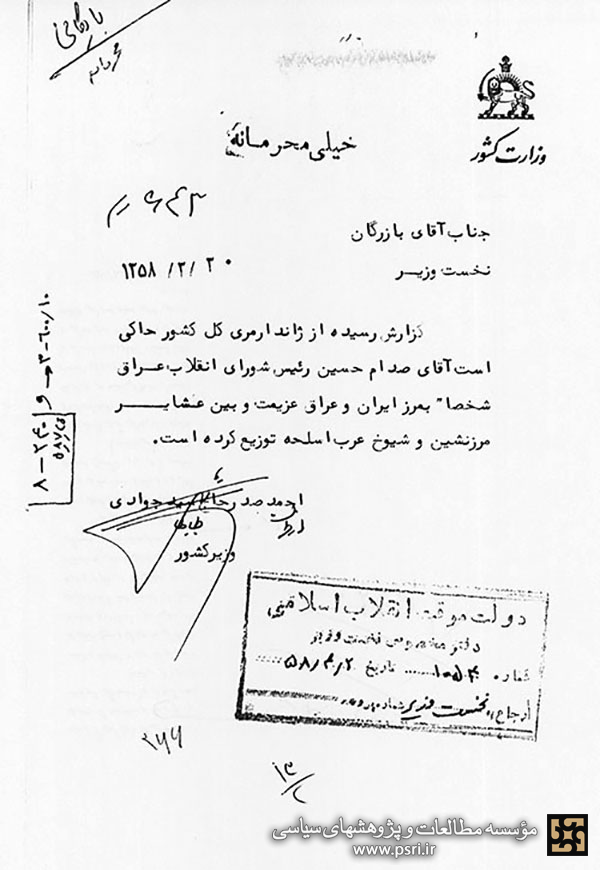 بایگانی
محرمانه
وزارت کشور
خیلی محرمانهٔ
۶۴۳ م
جناب آقای بازرگان
نخست وزیر
۱۳۵۸ /۲/ ۲۰
گزارش رسیده از ژاندارمری کل کشور حاکی
است آقای صدام حسین رئیس شورای انقلاب عراق
شخصا" بمرز ایران و عراق عزیمت و بین عشایر
مرزنشین و شیوخ عرب اسلحه توزیع کرده است.
احمد صدر حاج سید جوادی
وزیر کشور
دولت موقت انقلاب اسلامی
دفتر مخصوص نخست وزیر
شماره ۱۰۵۴۰ تاریخ ۵۸/۴/۲
ارجاع: نخست وزیری شماره پرونده
۲۶۶
۱۳/۲
مؤسسه مطالعات و پژوهشهای سیاسی
www.psri.ir